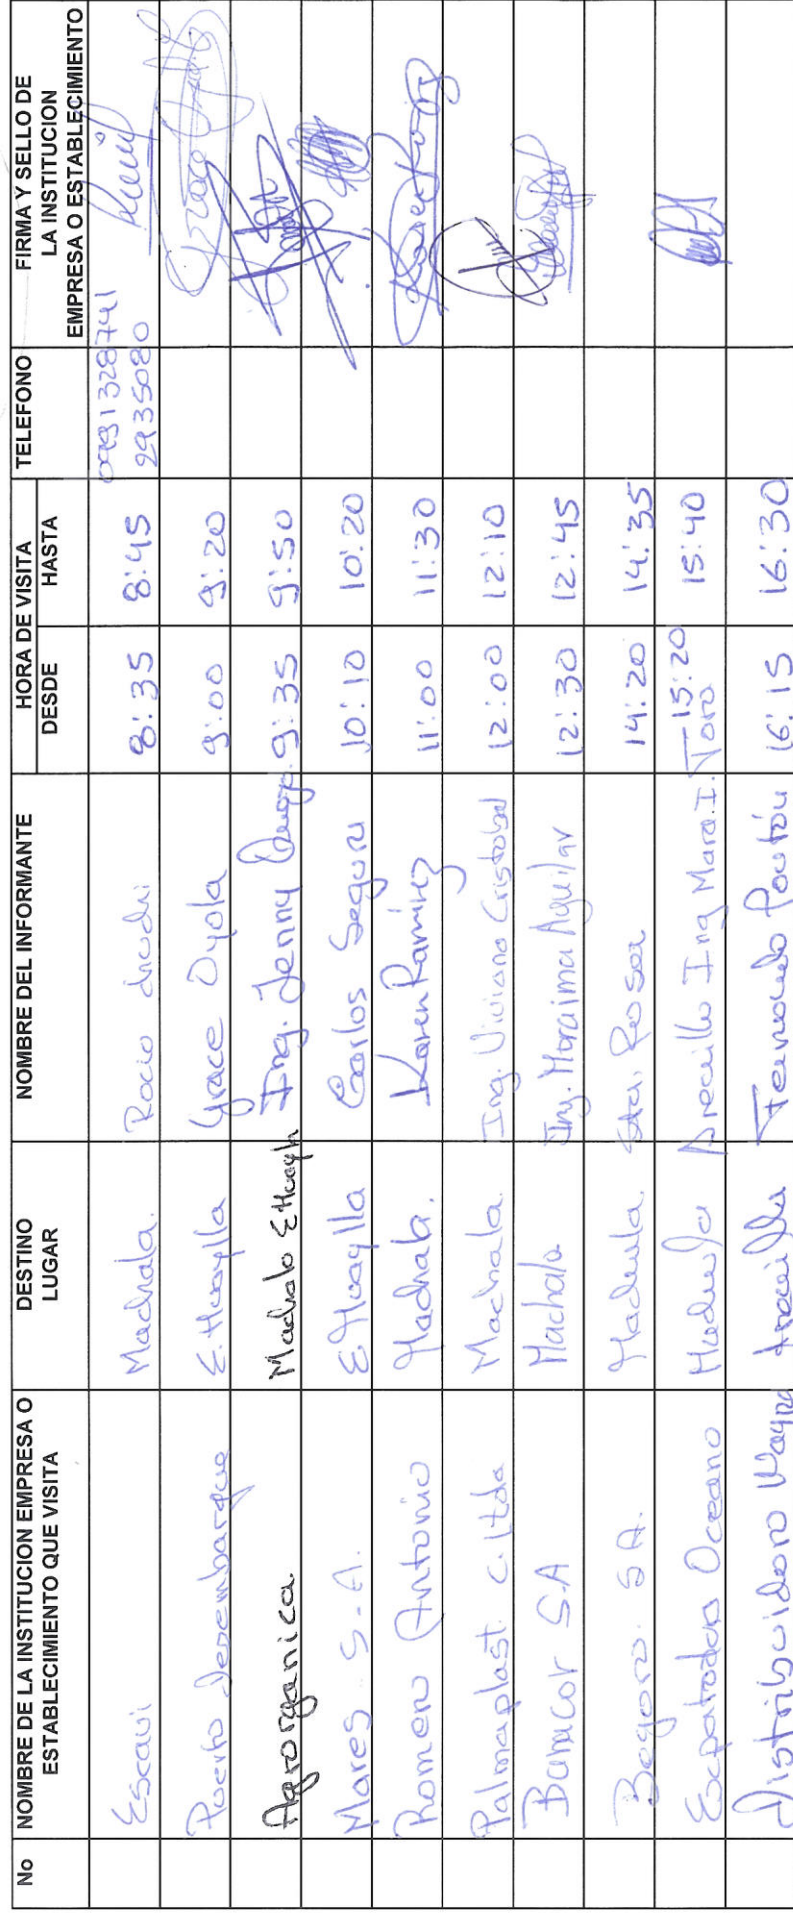 No NOMBRE DE LA INSTITUCION EMPRESA O ESTABLECIMIENTO QUE VISITA DESTINO LUGAR NOMBRE DEL INFORMANTE HORA DE VISITA DESDE HASTA TELEFONO FIRMA Y SELLO DE LA INSTITUCION EMPRESA O ESTABLECIMIENTO
Escavi Machala. Rocio 8:35 8:45 2935080
Puerto desembarque E. Huaylla Grace Oyola 9:00 9:20
Agrorganica. Machala Ing. Jenny 9:35 9:50
Mares S.A. E Huaylla Carlos Segura 10:10 10:20
Romero Antonio Machala. Karen Ramirez 11:00 11:30 Karen
Palmaplast. C. Ltda Machala. Ing. Viviana Cristobal 12:00 12:10
S.A Machala Ing. Moraima Aguilar 12:30 12:45
S.A. Machala Rosa 14:20 14:35
Oceano Machala Ing 15:20 15:40
Distribuidora Fernando 16:15 16:30